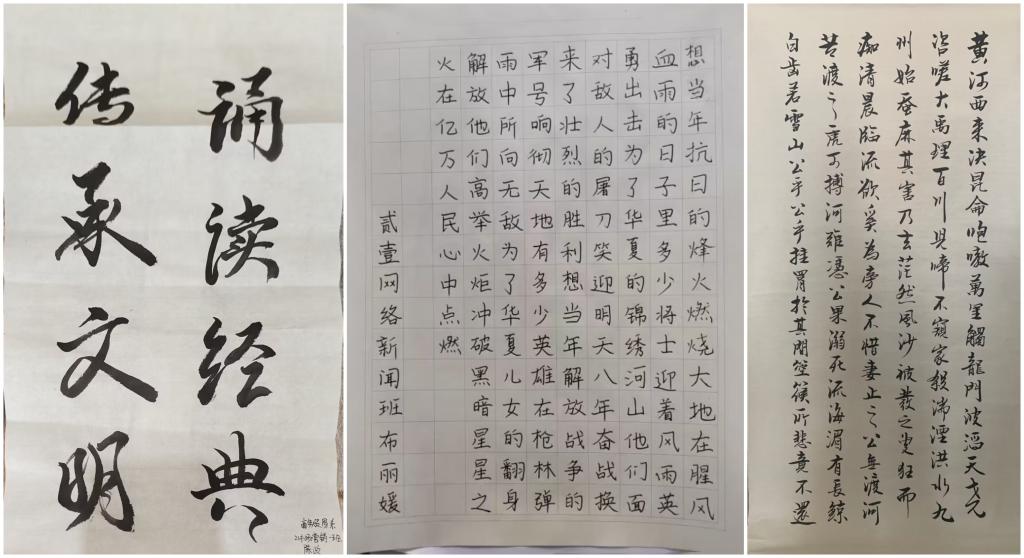 诵读经典
传承文明
想当年抗日的烽火燃烧大地在腥风
血雨的日子里多少将士迎着风雨英
勇出击为了华夏的锦绣河山他们面
对敌人的屠刀笑迎明天八年奋战换
来了壮烈的胜利想当年解放战争的
军号响彻天地有多少英雄在枪林弹
雨中所向无敌为了华夏儿女的翻身
解放他们高举火炬冲破黑暗星星之
火在亿万人民心中点燃
贰壹网络新闻班布丽媛
黄河西来决昆侖咆嗷萬里觸龍門波滔天尧
咨嗟大禹理百川児啼不窺家殺湍湮洪水九
州始蚕麻其害乃去茫然風沙被髮之叟狂而
痴清晨临流欲奚為旁人不惜妻止之公無渡河
苦渡之虎可搏河難憑公果溺死流海湄有長鲸
白齿若雪山公乎公乎挂罥於其間箜篌所悲竟不還